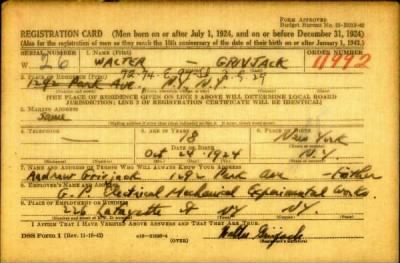 FORM APPROVED
REGISTRATION CARD—(Men born on or after July 1, 1924, and on or before December 31, 1924)
(Also for the registration of men as they reach the 18th anniversary of the date of their birth on or after January 1, 1943.)
SERIAL NUMBER 1. NAME (Print) ORDER NUMBER
W 26 WALTER — GRIVJACK 11992
2. PLACE OF RESIDENCE (Print)
1292 Park Ave. N.Y. N.Y.
[THE PLACE OF RESIDENCE GIVEN ON LINE 2 ABOVE WILL DETERMINE LOCAL BOARD
JURISDICTION; LINE 2 OF REGISTRATION CERTIFICATE WILL BE IDENTICAL]
3. MAILING ADDRESS
Same
4. TELEPHONE 5. AGE IN YEARS 6. PLACE OF BIRTH
— 18 New York
DATE OF BIRTH
Oct 24 1924 N.Y.
7. NAME AND ADDRESS OF PERSON WHO WILL ALWAYS KNOW YOUR ADDRESS
Andrew Grivjack 1292 Park Ave — Father
8. EMPLOYER'S NAME AND ADDRESS
Electrical Mechanical Experimental Works
9. PLACE OF EMPLOYMENT OR BUSINESS
226 Lafayette St NY NY.
I AFFIRM THAT I HAVE VERIFIED ABOVE ANSWERS AND THAT THEY ARE TRUE.
DSS Form 1 (Rev. 11-16-42) (OVER) Walter Grivjack